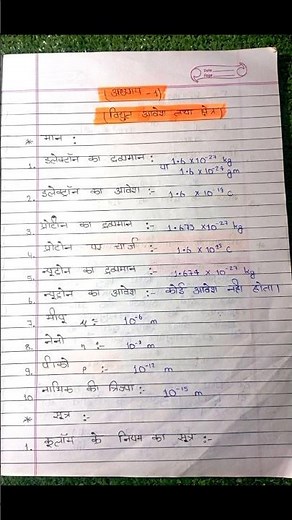 (अध्याय - 1)
(विद्युत आवेश तथा क्षेत्र)
* मान :
1. इलेक्ट्रॉन का द्रव्यमान : 1.6 x 10⁻²⁷ kg
या 1.6 x 10⁻²⁴ gm
2. इलेक्ट्रॉन का आवेश :- 1.6 x 10⁻¹⁹ c
3. प्रोटॉन का द्रव्यमान :- 1.673 x 10⁻²⁷ kg
4. प्रोटॉन पर चार्ज :- 1.6 x 10⁻¹⁹ c
5. न्यूट्रोन का द्रव्यमान :- 1.674 x 10⁻²⁷ kg
6. न्यूट्रोन का आवेश :- कोई आवेश नही होता।
7. मीयू μ :- 10⁻⁶ m
8. नेनो n :- 10⁻⁹ m
9. पीको p :- 10⁻¹² m
10. नाभिक की त्रिज्या :- 10⁻¹⁵ m
* सूत्र :-
1. कूलॉम के नियम का सूत्र :-